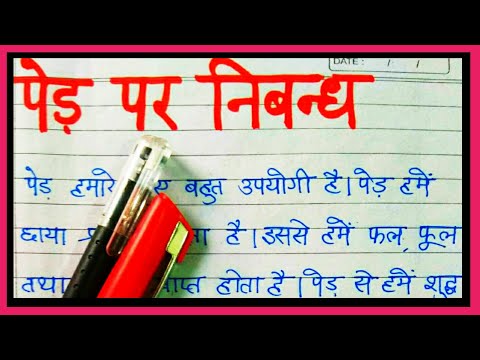 DATE: / /
पेड़ पर निबन्ध
पेड़ हमारे बहुत उपयोगी है। पेड़ हमें
छाया है। इससे हमें फल, फूल
तथा होता है। पेड़ से हमें शुद्ध